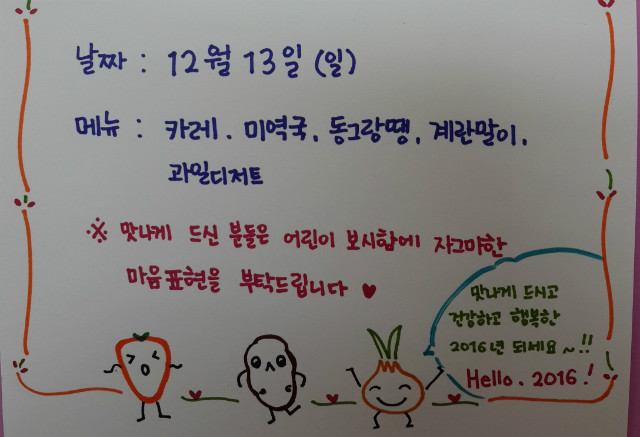 날짜 : 12월 13일 (일)
메뉴 : 카레. 미역국, 동그랑땡, 계란말이,
과일디저트
※ 맛나게 드신 분들은 어린이 보시함에 자그마한
마음표현을 부탁드립니다 ♥
맛나게 드시고
건강하고 행복한
2016년 되세요~!!
Hello. 2016!